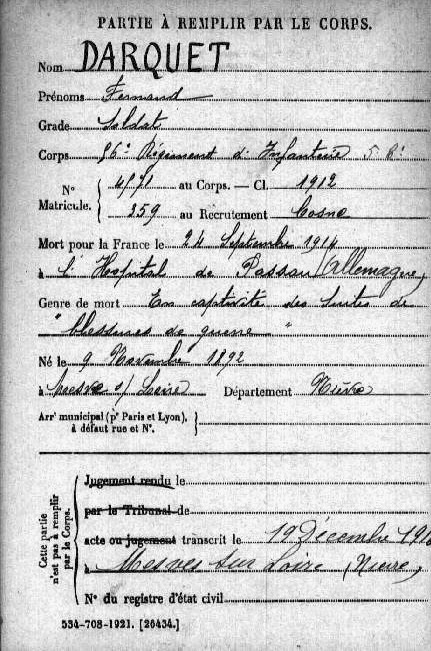 PARTIE À REMPLIR PAR LE CORPS.
Nom DARQUET
Prénoms Fernand
Grade Soldat
Corps 95e Régiment d'Infanterie
N° Matricule. 4971 au Corps. — Cl. 1912
259 au Recrutement Cosne
Mort pour la France le 24 Septembre 1914
à l'Hôpital de Passau (Allemagne)
Genre de mort En captivité des suites de
"blessures de guerre"
Né le 9 Novembre 1892
à Mesves s/ Loire Département Nièvre
Arrt municipal (pr Paris et Lyon),
à défaut rue et N°.
Cette partie n'est pas à remplir par le Corps.
Jugement rendu le
par le Tribunal de
acte ou jugement transcrit le 19 Décembre
à Mesves sur Loire (Nièvre)
N° du registre d'état civil
534-708-1921. [26434.]